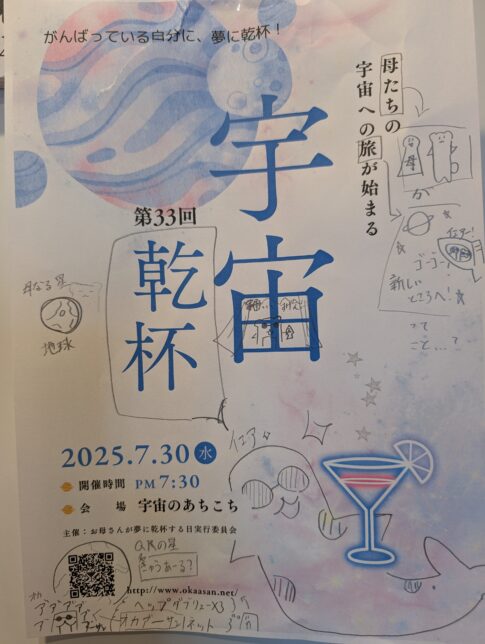 がんばっている自分に、夢に乾杯！
母たちの
宇宙への旅が始まる
宇宙
第33回
乾杯
母
か
ゴーゴー！
新しい
ところへ！
って
こと…？
母なる星
地球
2025.7.30 水
開催時間 PM7:30
会 場 宇宙のあちこち
主催：お母さんが夢に乾杯する日実行委員会
Q,Rの星
きゅうあーる？
http://www.okaasan.net/